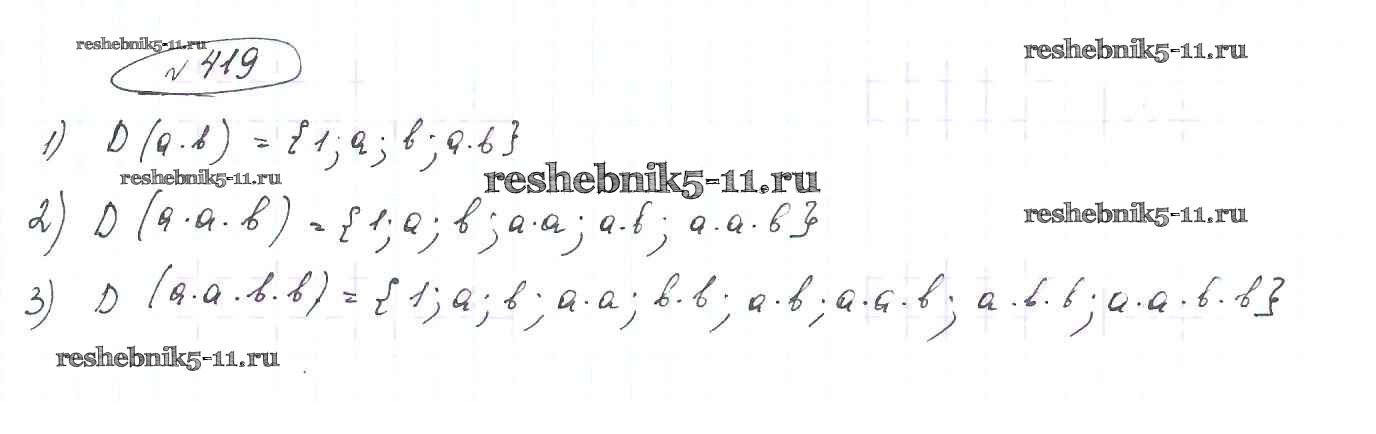 reshebnik5-11.ru
№ 419
reshebnik5-11.ru
1) D (a·b) = {1; a; b; a·b}
reshebnik5-11.ru
reshebnik5-11.ru
2) D (a·a·b) = {1; a; b; a·a; a·b; a·a·b}
reshebnik5-11.ru
3) D (a·a·b·b) = {1; a; b; a·a; b·b; a·b; a·a·b; a·b·b; a·a·b·b}
reshebnik5-11.ru